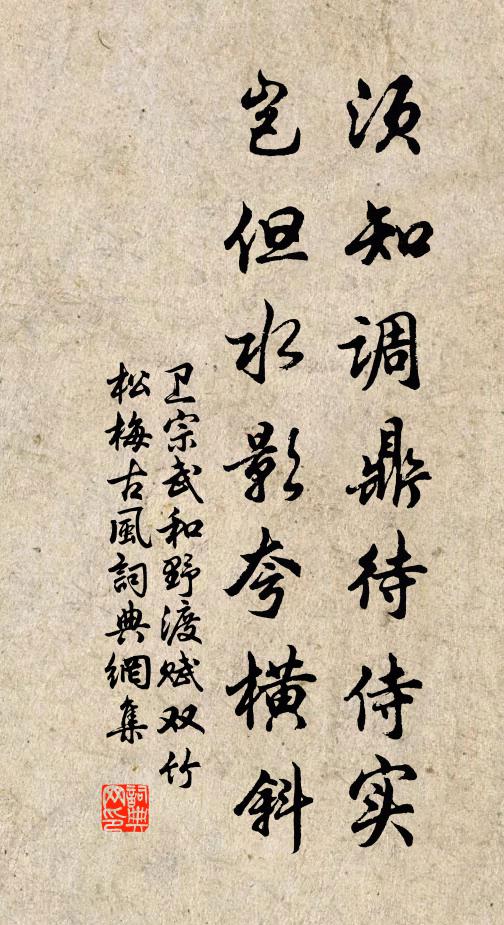 须知调鼎待侍实
岂但水影夸横斜
卫宗武和野渡赋双竹
松梅古风词典网集
词典网印